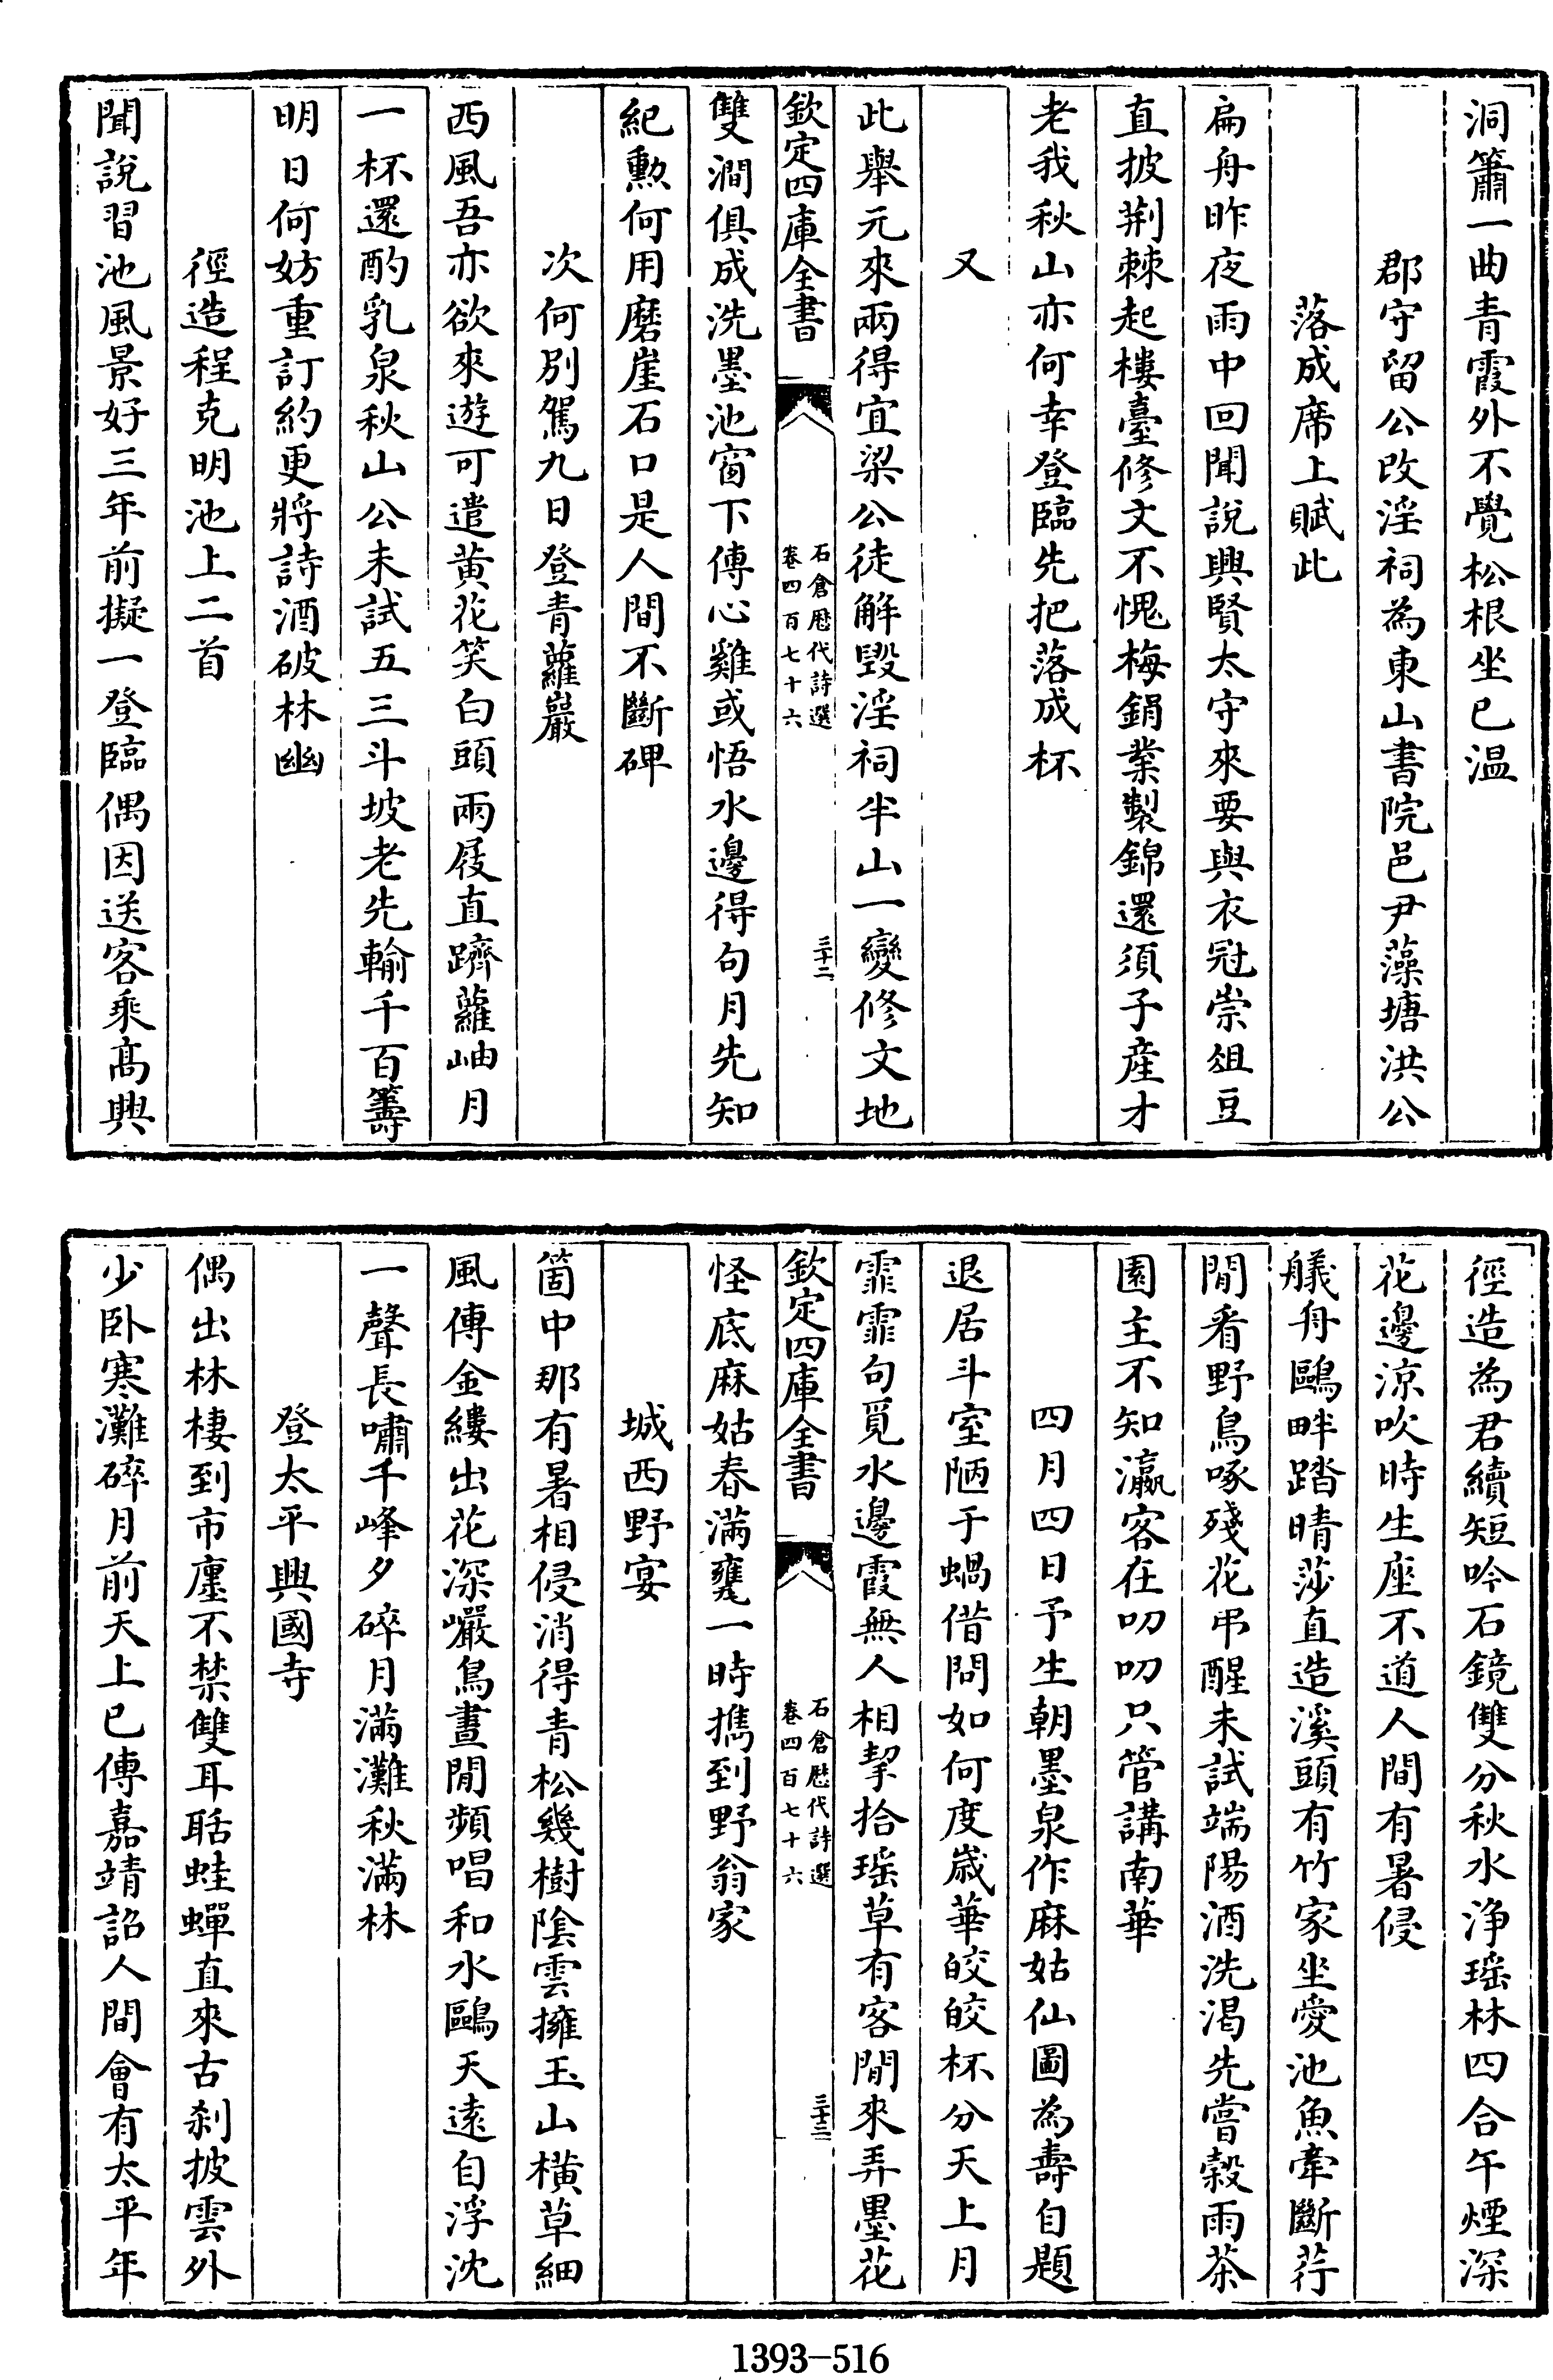 洞簫一曲青霞外不覺松根坐已温
郡守留公改淫祠為東山書院邑尹藻塘洪公
落成席上賦此
扁舟昨夜雨中回聞說興賢太守來要與衣冠崇俎豆
直披荆棘起樓臺修文不愧梅鋗業製錦還須子産才
老我秋山亦何幸登臨先把落成杯
又
此舉元來兩得宜梁公徒解毁淫祠半山一變修文地
欽定四庫全書
石倉歴代詩選
卷四百七十六
三十二
雙澗俱成洗墨池窗下傳心雞或悟水邊得句月先知
紀勲何用磨崖石口是人間不斷碑
次何別駕九日登青蘿巖
西風吾亦欲來遊可遣黄花笑白頭兩屐直躋蘿岫月
一杯還酌乳泉秋山公未試五三斗坡老先輸千百籌
明日何妨重訂約更將詩酒破林幽
徑造程克明池上二首
聞說習池風景好三年前擬一登臨偶因送客乘髙興
徑造為君續短吟石鏡雙分秋水浄瑶林四合午煙深
花邊涼吹時生座不道人間有暑侵
艤舟鷗畔踏晴莎直造溪頭有竹家坐愛池魚牽斷荇
閒看野鳥啄殘花弔醒未試端陽酒洗渴先嘗榖雨茶
園主不知瀛客在叨叨只管講南華
四月四日予生朝墨泉作麻姑仙圖為壽自題
退居斗室陋于蝸借問如何度嵗華皎皎杯分天上月
霏霏句覓水邊霞無人相挈拾瑶草有客閒來弄墨花
欽定四庫全書
石倉歴代詩選
卷四百七十六
三十三
怪底麻姑春滿甕一時擕到野翁家
城西野宴
箇中那有暑相侵消得青松幾樹隂雲擁玉山橫草細
風傳金縷出花深巖鳥晝閒頻唱和水鷗天遠自浮沈
一聲長嘯千峰夕碎月滿灘秋滿林
登太平興國寺
偶出林棲到市廛不禁雙耳聒蛙蟬直來古刹披雲外
少卧寒灘碎月前天上已傳嘉靖詔人間會有太平年
1393-516